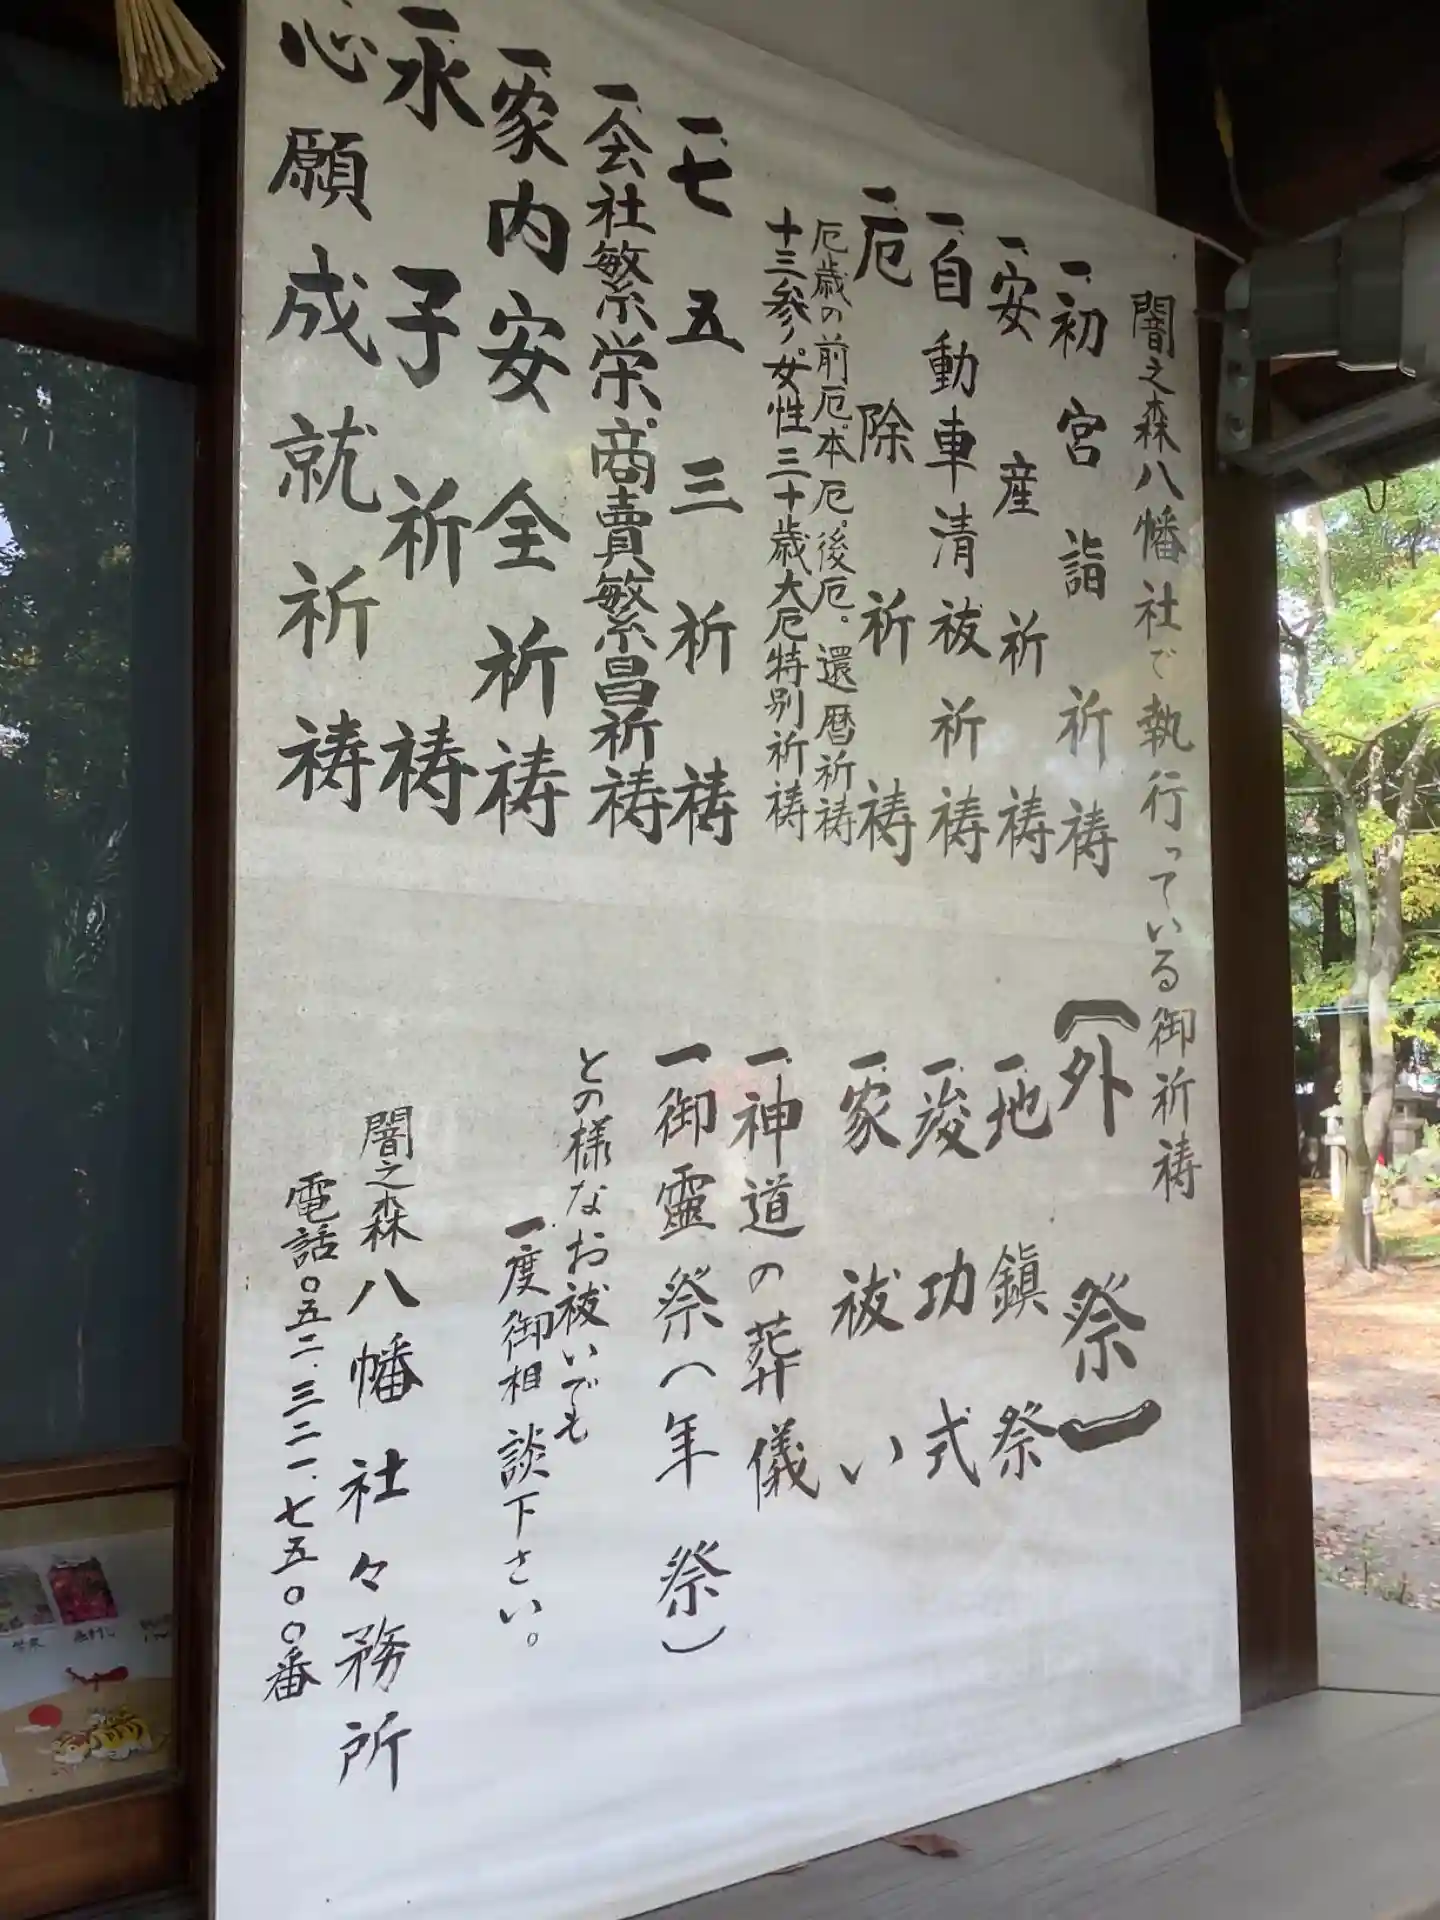 闇之森八幡社で執行っている御祈祷
一、初宮詣祈祷
一、安産祈祷
一、自動車清祓祈祷
一、厄除祈祷
厄歳の前厄。本厄。後厄。還暦祈祷
十三参。女性三十歳大厄特別祈祷
一、七五三祈祷
一、会社繁栄。商賣繁昌祈祷
一、家内安全祈祷
一、水子祈祷
心願成就祈祷
（外祭）
一、地鎮祭
一、竣功式
一、家祓い
一、神道の葬儀
一、御霊祭（年祭）
どの様なお祓いでも
一度御相談下さい。
闇之森八幡社々務所
電話〇五二．三二一．七五〇〇番